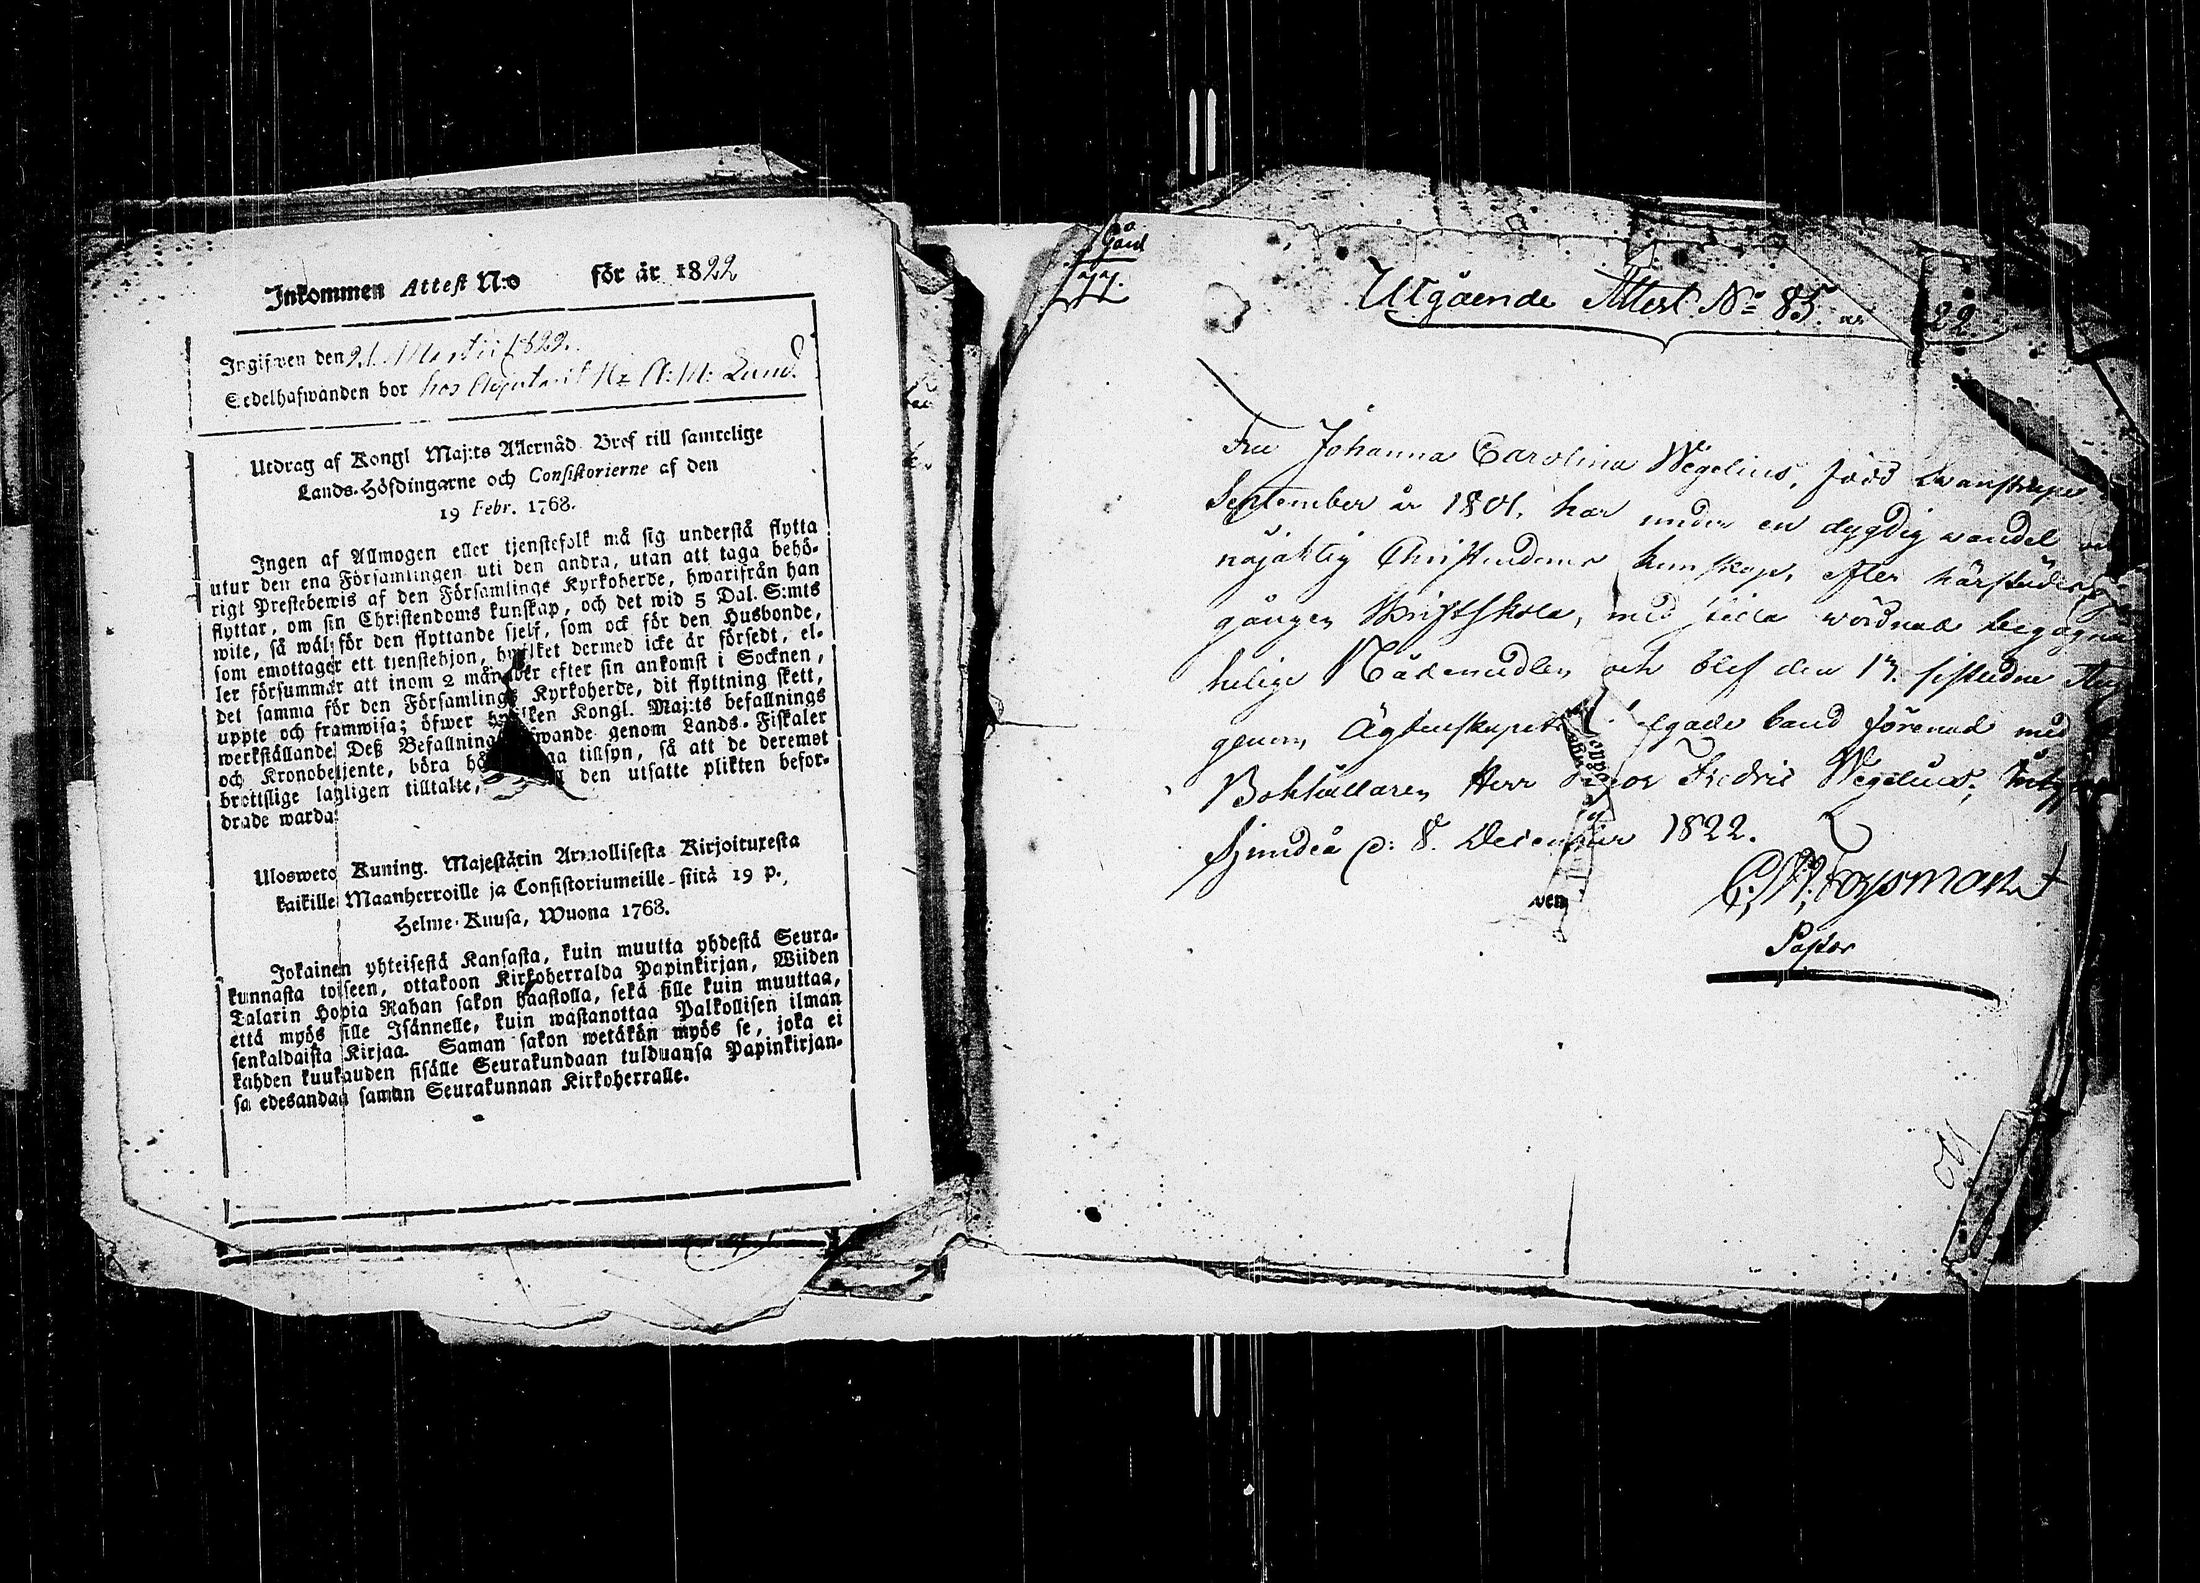 Inkommen Attest N:o för år 1822
Ingifwen den 21. Martii 1822.
Sedelhafwanden bor hos
Utdrag af Kongl Maj:ts Allernåd. Bref till samtelige
Lands-Höfdingarne och Consistorierne af den
19 Febr. 1768.
Ingen af Allmogen eller tjenstefolk må sig understå flytta
utur den ena Församlingen uti den andra, utan att taga behö-
rigt Prestebewis af den Församlings Kyrkoherde, hwarifrån han
flyttar, om sin Christendoms kunskap, och det wid 5 Dal. S:mts
wite, så wäl för den flyttande sjelf, som ock för den Husbonde,
som emottager ett tjenstehjon, hwilket dermed icke är försedt, el-
ler försummar att inom 2 månader efter sin ankomst i Socknen,
det samma för den Församlings Kyrkoherde, dit flyttning skett,
uppte och framwisa; öfwer hwilken Kongl. Maj:ts befallnings
werkställande Deß Befallnings wande genom Lands-Fiskaler
och Kronobetjente, böra tillsyn, så att de deremot
brottslige lagligen tilltalte, den utsatte plikten befor-
drade warda.
Uloswetö Kuning. Majestätin Armollisesta Kirjoituxesta
kaikille Maanherroille ja Consistoriumeille, siitä 19 p.,
Helme-Kuusa, Wuona 1768.
Jokainen yhteisestä Kansasta, kuin muutta yhdestä Seura-
kunnasta toiseen, ottakoon Kirkoherralda Papinkirjan, Wiiden
Talarin Hopia Rahan sakon haastolla, sekä sille kuin muuttaa,
että myös sille Isännelle, kuin wastanottaa Palkollisen ilman
senkaldaista Kirjaa. Saman sakon wetäkön myös se, joka ei
kahden kuukauden sisälle Seurakundaan tulduansa Papinkirjan-
sa edesandaa saman Seurakunnan Kirkoherralle.
Gård
Utgående Attest No 85. 22
Fru Johanna Carolina Wegelius, född
September år 1801, har under en dygdig vandel
nöjaktig Christendoms kunskap, efter härstädes
gången Skriftskola, med vördnad begagna
helige Nådemedlen och blef den 13. sistledne
genom Ägtenskapets band förenad med
Bokhållaren Herr Fredric Wegelius;
Sjundeå d: 8. December 1822.
Pastor